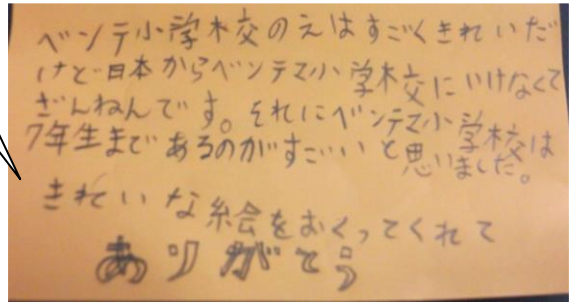 ベンテ小学校のえはすごくきれいだ
けど日本からベンテマ小学校にいけなくて
ざんねんです。それにベンテマ小学校は
7年生まであるのがすごいと思いました。
きれいな絵をおくってくれて
ありがとう